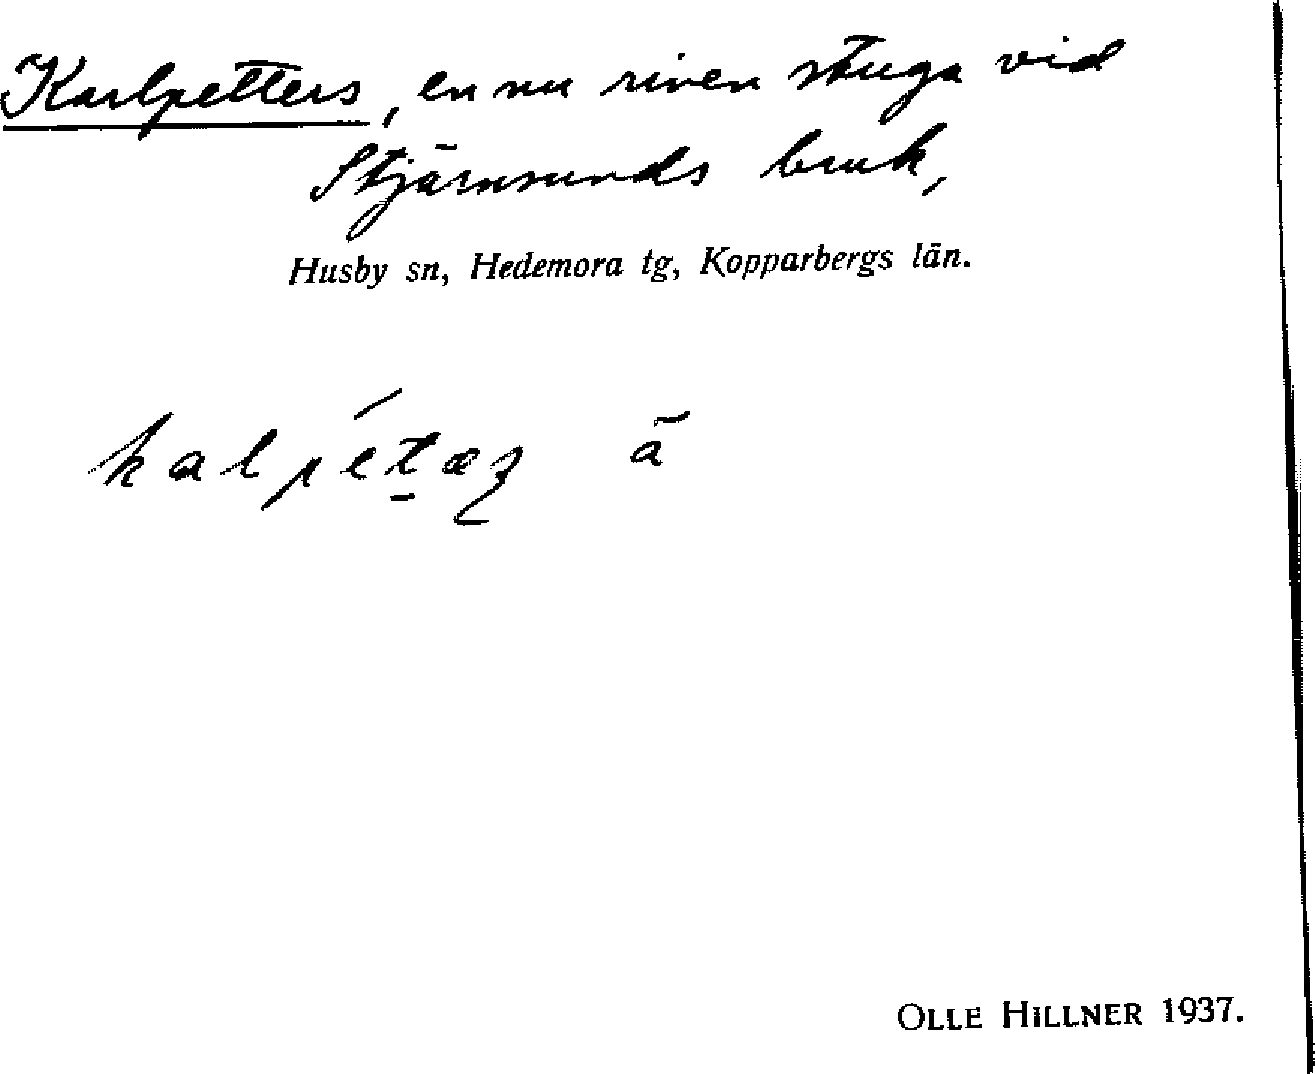 Karlpetters, en nu riven stuga vid
Stjärnsunds bruk,
Husby sn, Hedemora tg, Kopparbergs län.
kalpétæʒ ã
OLLE HILLNER 1937.